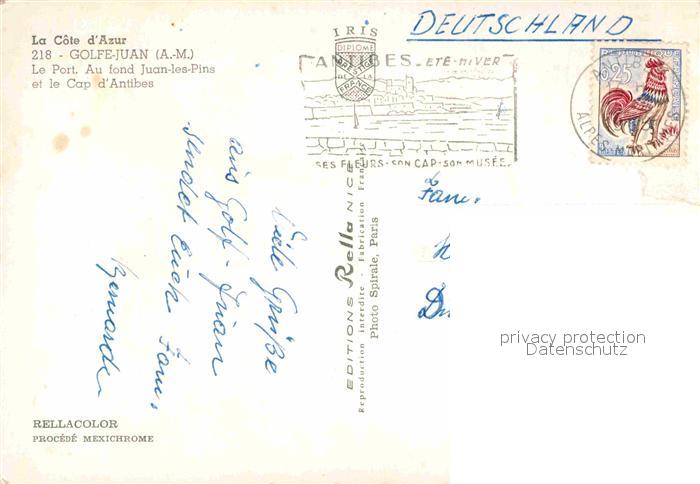 La Côte d'Azur
218 - GOLFE-JUAN (A.-M.)
Le Port. Au fond Juan-les-Pins
et le Cap d'Antibes
IRIS
DIPLOME
PRESTIGE
DE LA
FRANCE
DEUTSCHLAND
ANTIBES - ÉTÉ-HIVER
SES FLEURS - SON CAP - SON MUSÉE
0,25
ALPES MARITIMES
Viele Grüße
aus Golf-Juan
sendet Euch Fam.
EDITIONS Rella NICE
Reproduction interdite - Fabrication Française
Photo Spirale, Paris
Fam.
privacy protection
Datenschutz
RELLACOLOR
PROCÉDÉ MEXICHROME